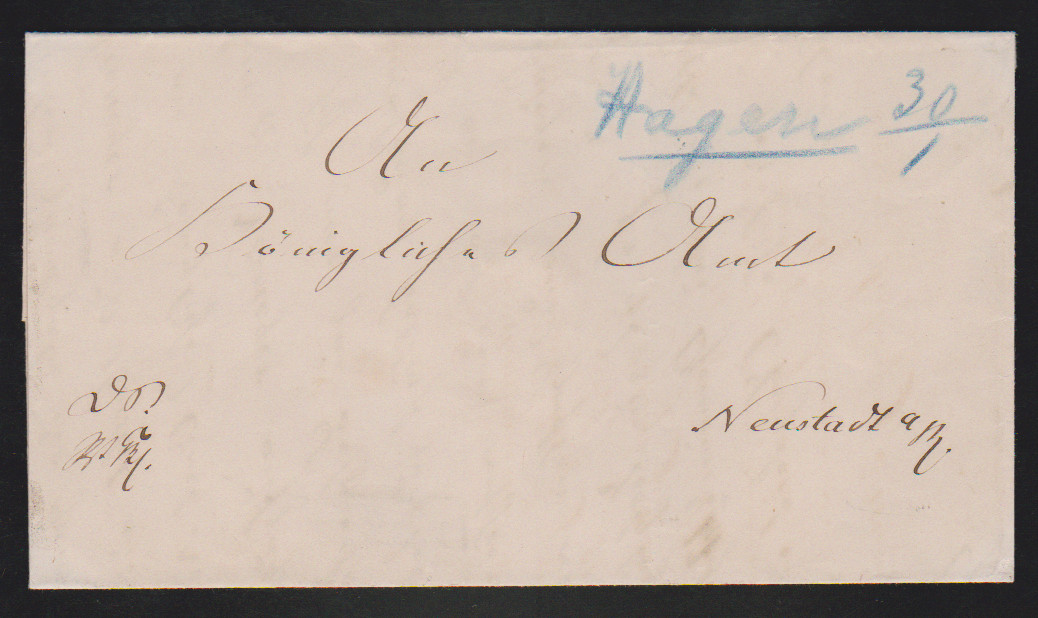 Hagen 30/1
An
Königliches Amt
Neustadt a/R.
D. S.